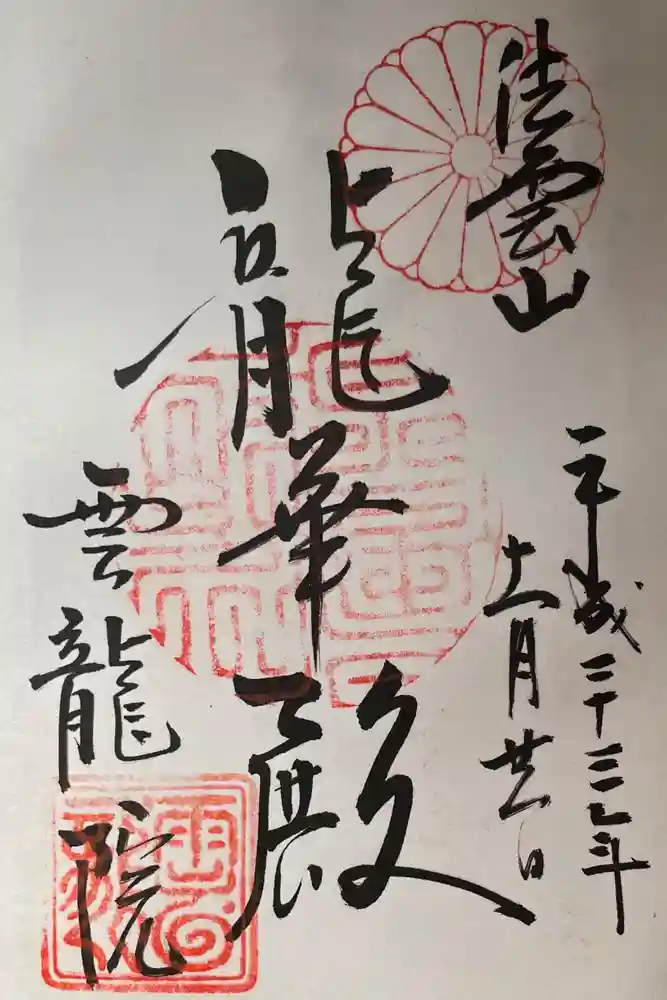 法雲山
平成二十三年
十一月廿一日
龍華殿
雲龍院